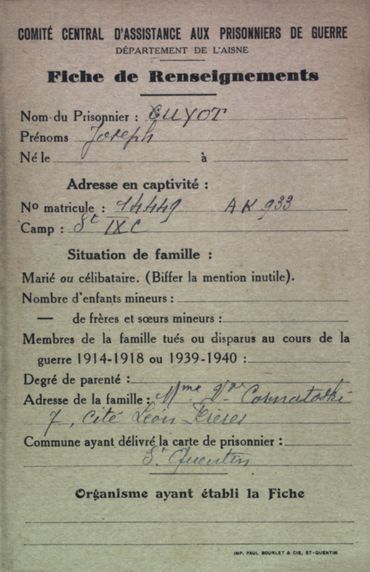 COMITÉ CENTRAL D'ASSISTANCE AUX PRISONNIERS DE GUERRE
DÉPARTEMENT DE L'AISNE
Fiche de Renseignements
Nom du Prisonnier : GUYOT
Prénoms Joseph
Né le à
Adresse en captivité :
No matricule : 74449 AK 933
Camp : St IXC
Situation de famille :
Marié ou célibataire. (Biffer la mention inutile).
Nombre d'enfants mineurs :
— de frères et sœurs mineurs :
Membres de la famille tués ou disparus au cours de la
guerre 1914-1918 ou 1939-1940 :
Degré de parenté :
Adresse de la famille : Mme Vve
7, Cité Léon
Commune ayant délivré la carte de prisonnier :
St Quentin
Organisme ayant établi la Fiche
IMP. PAUL BOURLET & CIE, ST-QUENTIN